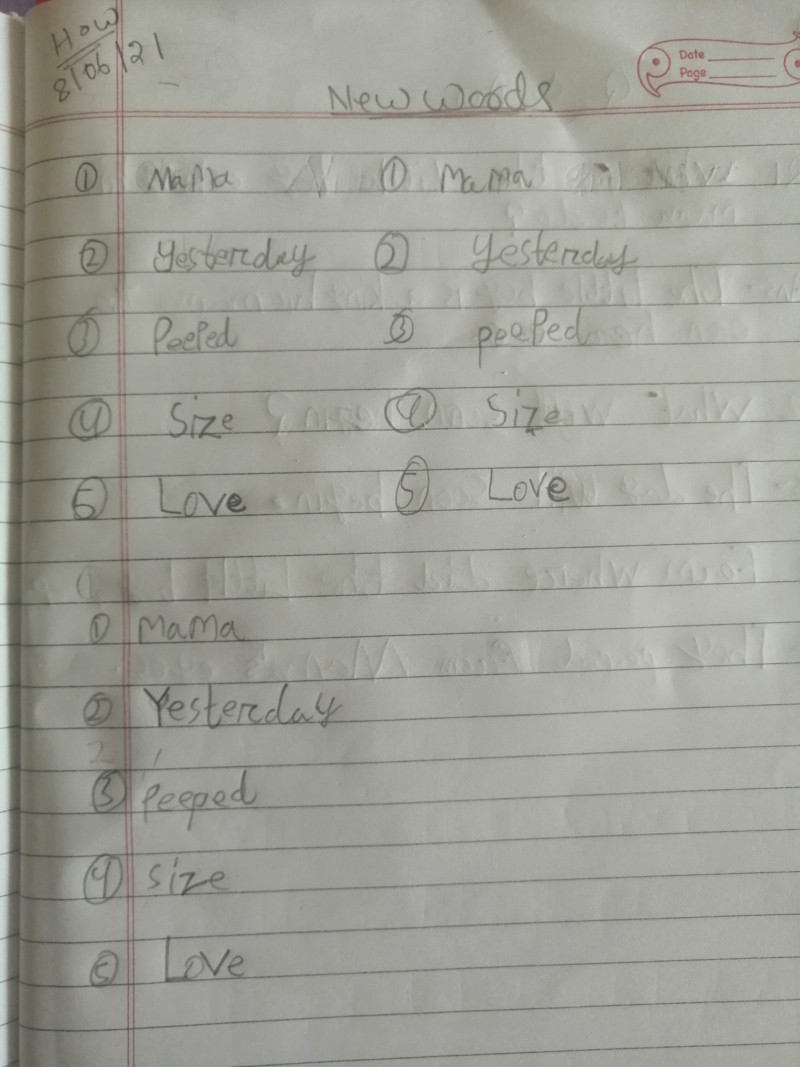 How
8/06/21
Date
Page
New woods
① MaMa ① Mama
② Yesterday ② Yesterday
③ Peeped ③ peeped
④ Size ④ Size
⑤ Love ⑤ Love
① MaMa
② Yesterday
2
③ Peeped
④ Size
⑤ Love